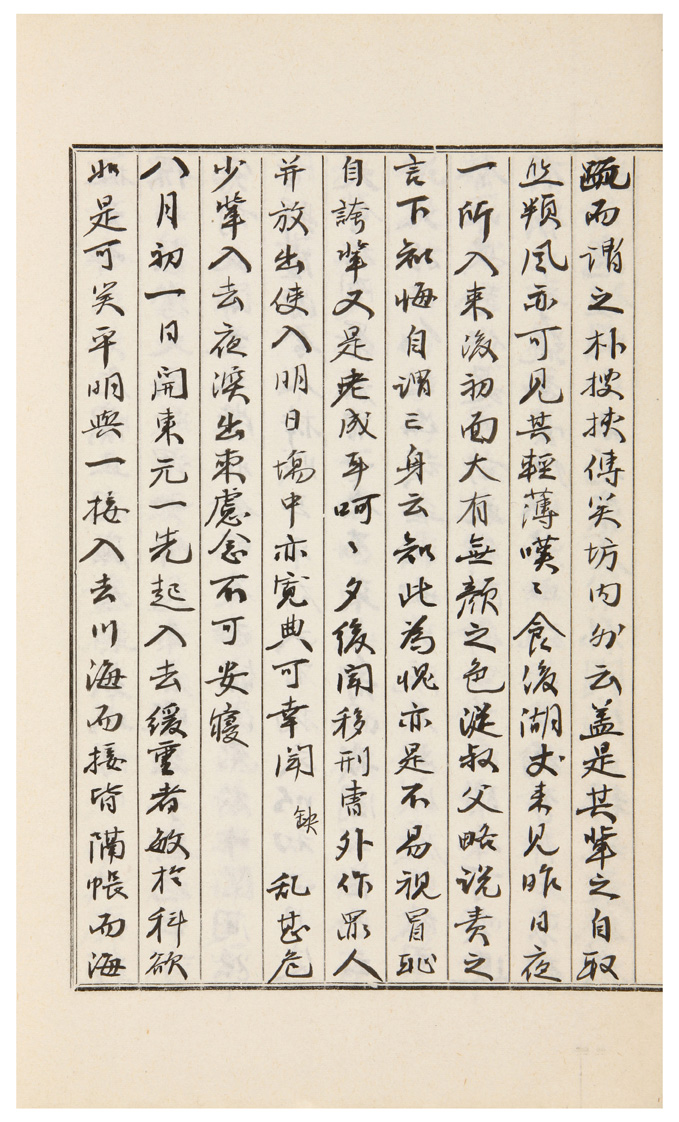 甌而謂之朴挍挾傳笑坊内外云盖是其輩之自取
然頹風亦可見其輕薄嘆〻食後湖丈来見昨日夜
一所入来後初面大有無顏之色從叔父略説責之
言下知悔自謂三身云知此為愧亦是不易視冒恥
自誇輩又是老成耳呵〻夕後聞移刑曺外作罪人
并放出使入明日場中亦寛典可幸聞 缺 乱甚危
少輩入去夜深出柬慮念不可安寢
八月初一日開東元一先起入去緩重者敏於科欲
如是可笑平明與一接入去川海而接皆隔帳而海